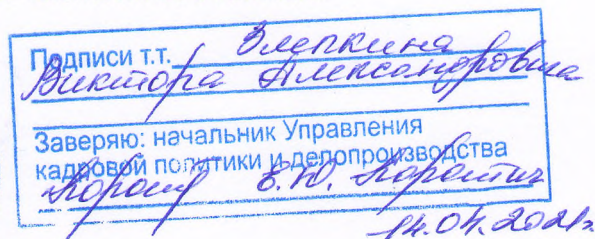 Подписи т.т. Злепкина
Виктора Александровича
Заверяю: начальник Управления
кадровой политики и делопроизводства
Е.Ю.
14.04.2021г.